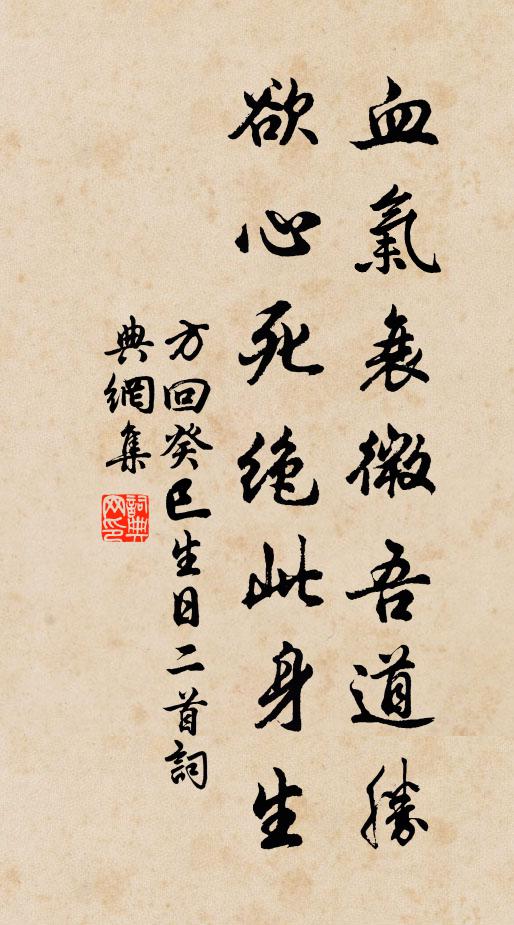 血氣衰微吾道勝
欲心死绝此身生
方回癸巳生日二首詞
典網集
詞典
网印